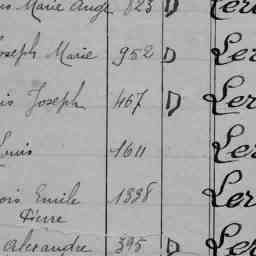 Marie Ange 823 D Ler
Joseph Marie 952 D Ler
Joseph 467 D Ler
Louis 1611 Ler
Emile 1328 Ler
Pierre
Alexandre 395 D Ler